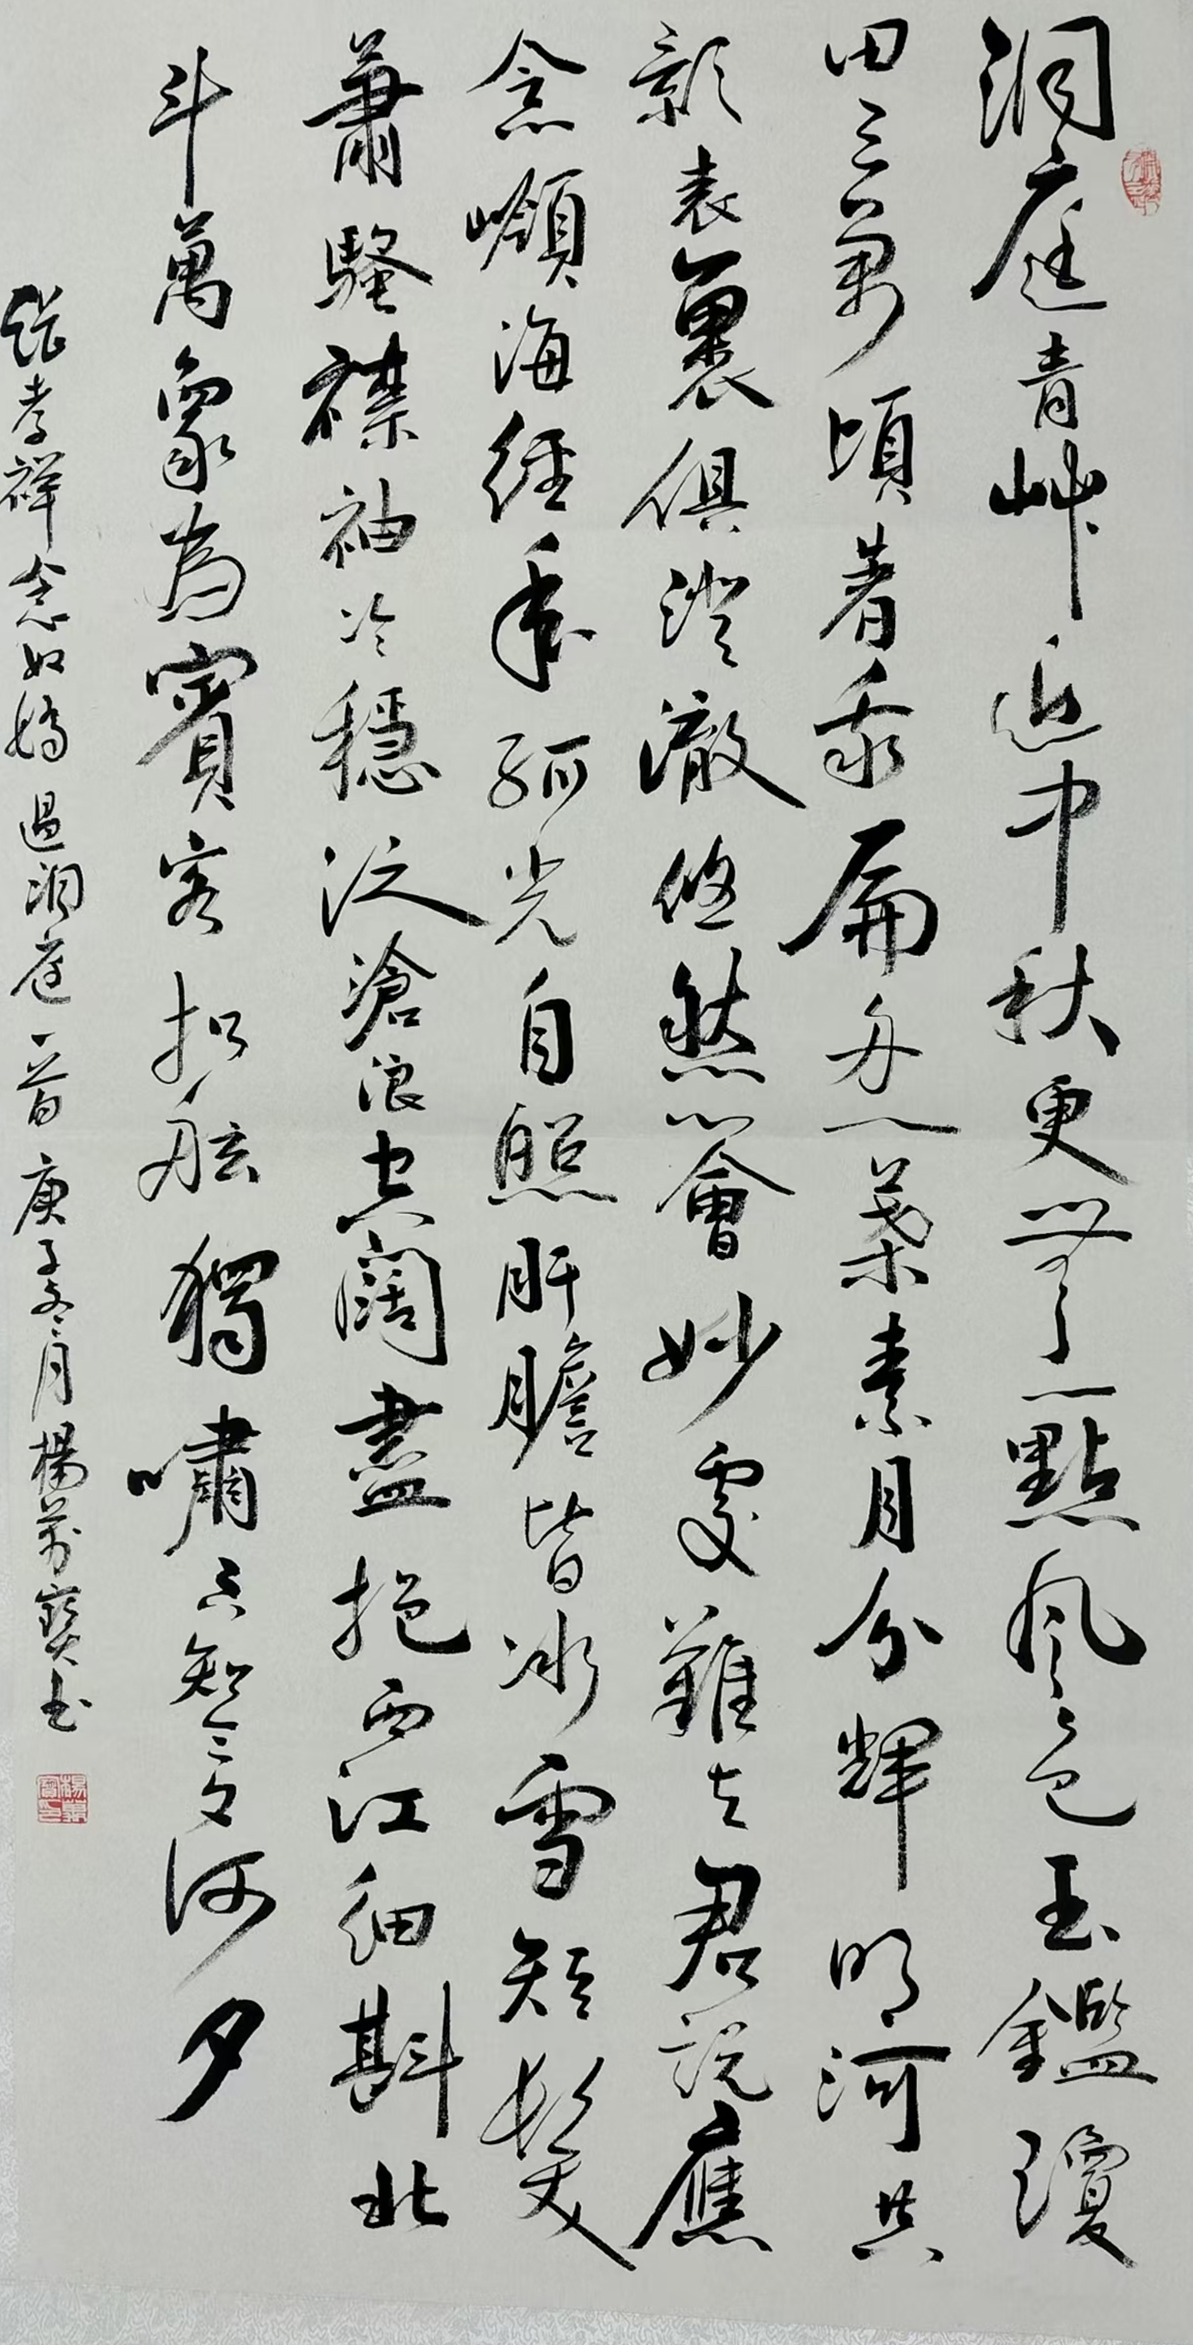 洞庭青艸近中秋更無一點風色玉鑑瓊
田三萬頃著我扁舟一葉素月分輝明河共
影表裏俱澄澈悠然心會妙處難與君說應
念嶺海經年孤光自照肝膽皆冰雪短髮
蕭騷襟袖冷穩泛滄浪空闊盡挹西江細斟北
斗萬象為賓客扣舷獨嘯不知今夕何夕
張孝祥念奴嬌過洞庭一首庚子冬月楊萬寶書